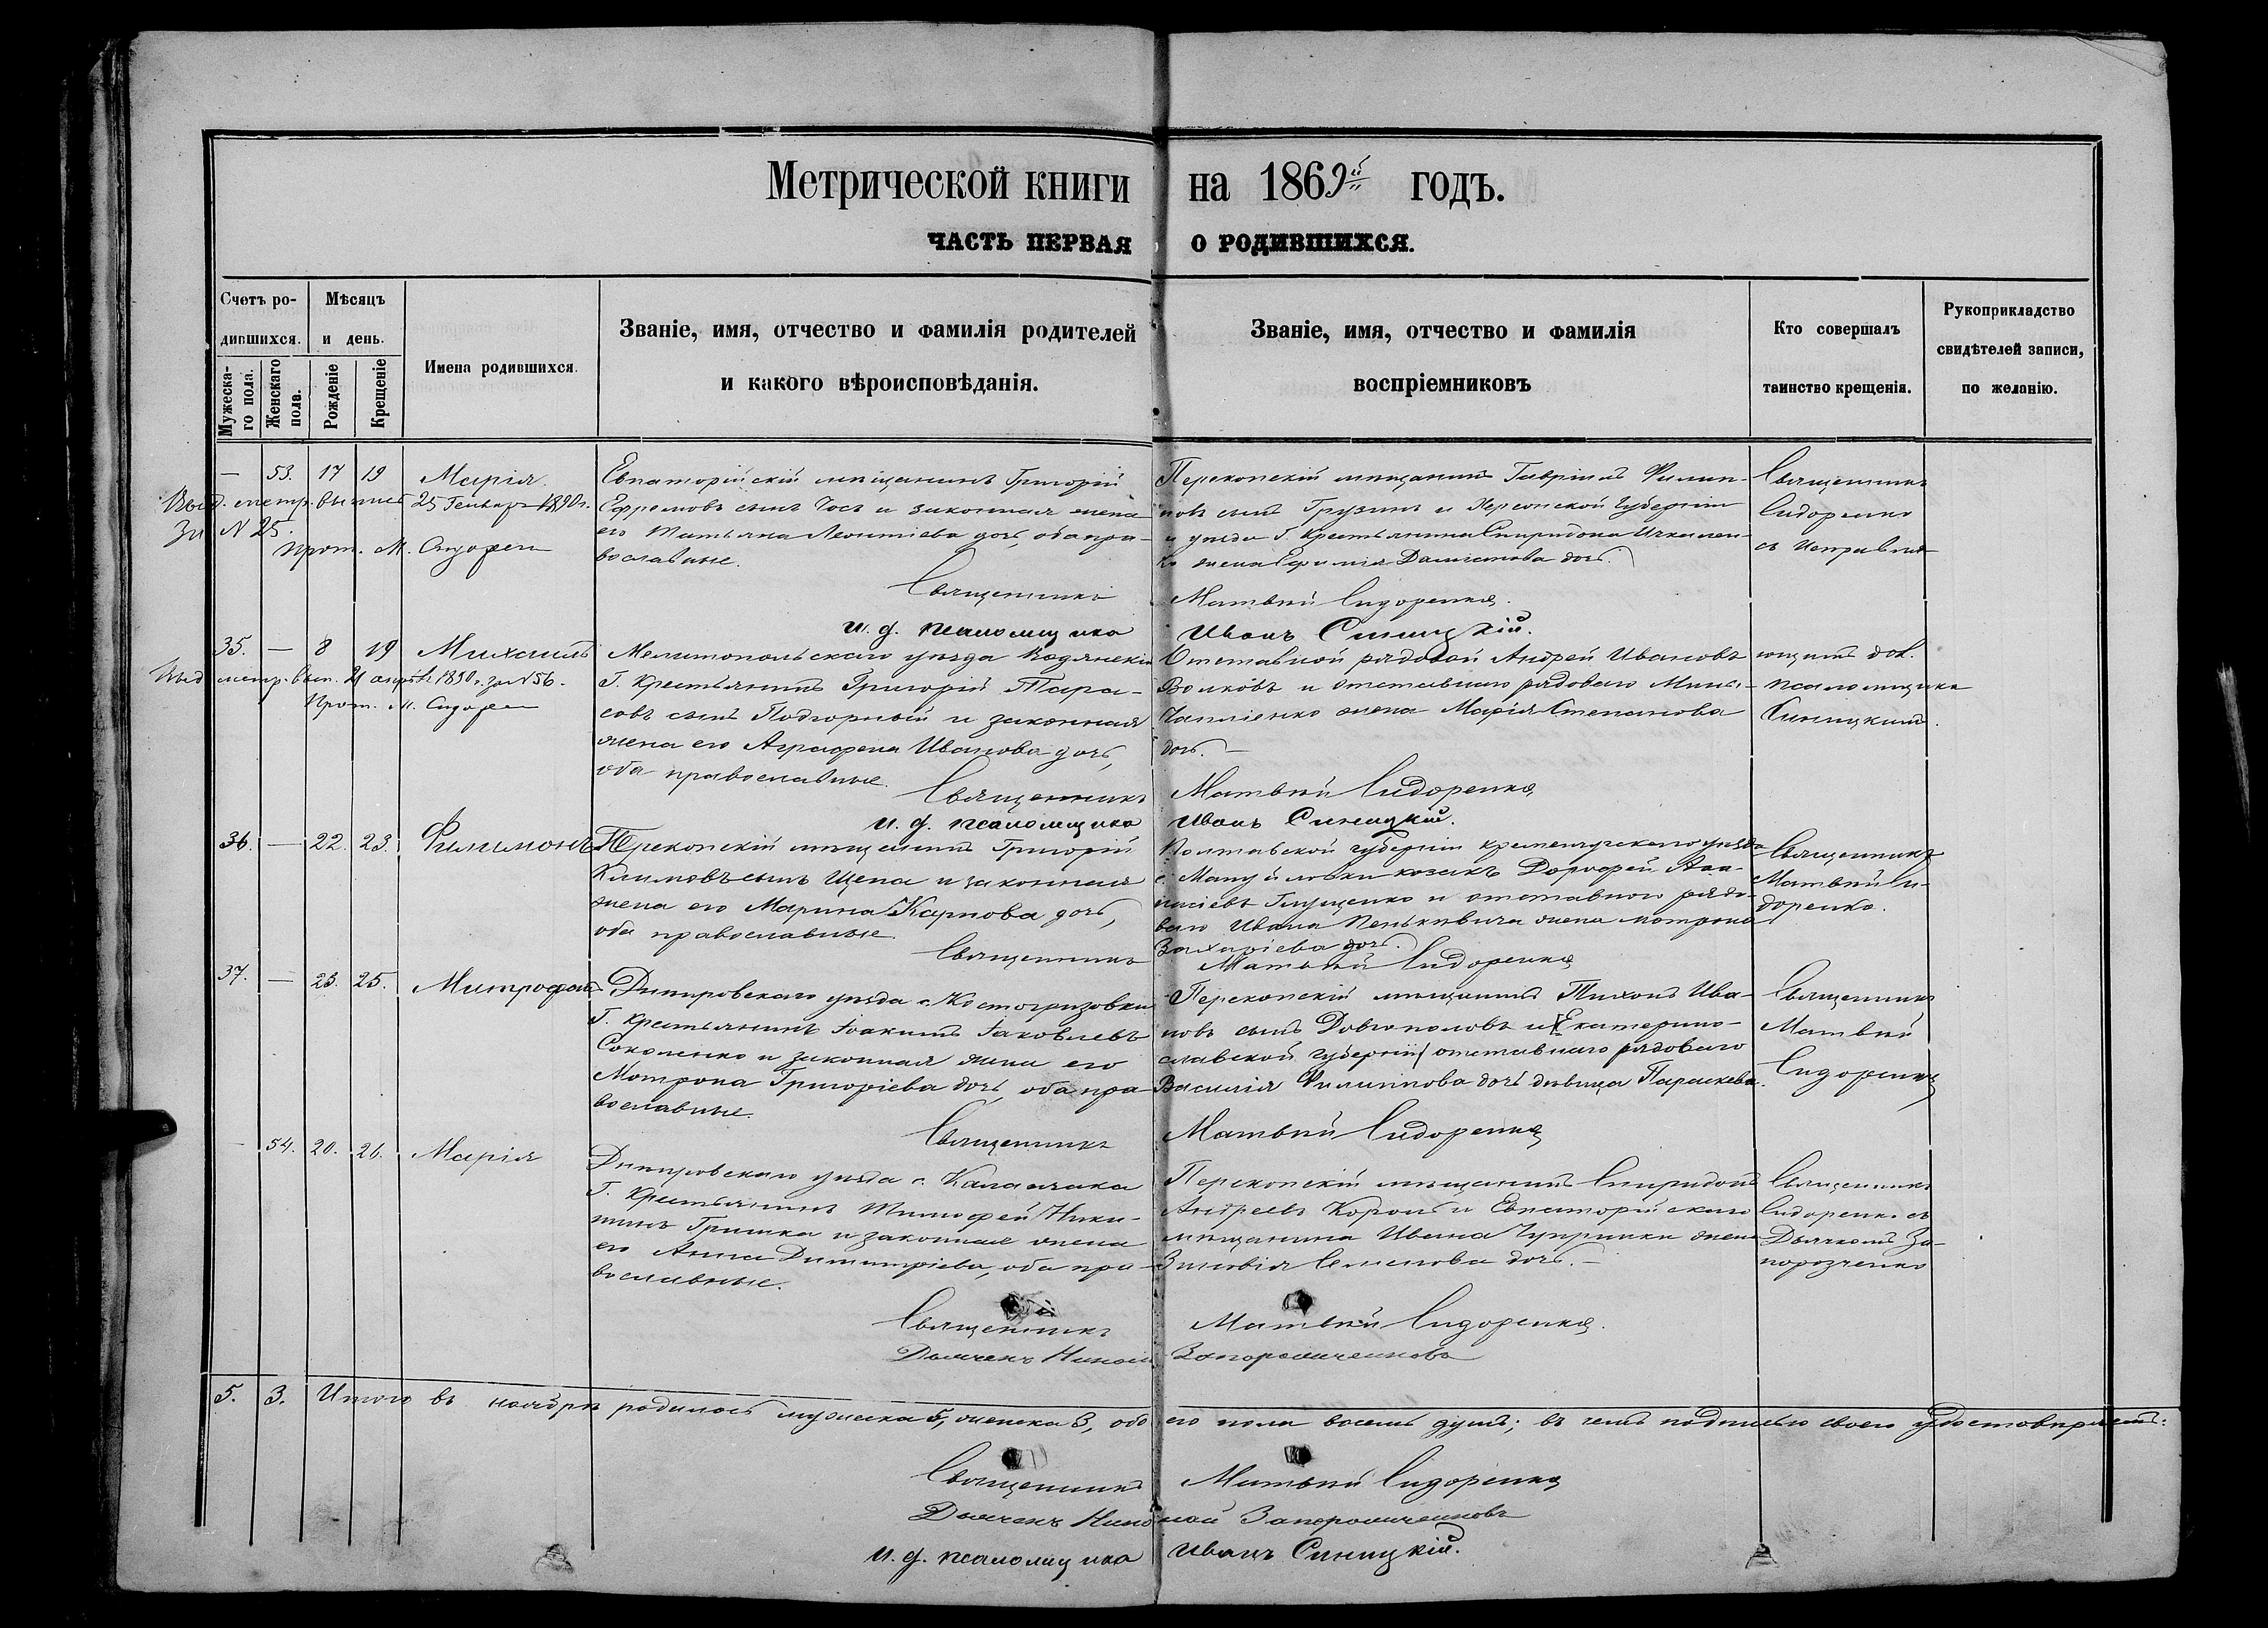 Метрической книги на 1869й годъ.
ЧАСТЬ ПЕРВАЯ О РОДИВШИХСЯ.
Счетъ родившихся.
Мужескаго пола.
Женскаго пола.
Мѣсяцъ и день.
Рожденіе
Крещеніе
Имена родившихся.
Званіе, имя, отчество и фамилія родителей
и какого вѣроисповѣданія.
Званіе, имя, отчество и фамилія
воспріемниковъ
Кто совершалъ
таинство крещенія.
Рукоприкладство
свидѣтелей записи,
по желанію.
— 53. 17 19 Марія.
Выд. метр. выпись 25 Генваря 1890 г.
За N 25.
Прот. М. Сидорен
Евпаторійскій мѣщанинъ Григорій
Ефремовъ сынъ Чосъ и законная жена
его Татьяна Леонтіева дочь, оба пра-
вославные.
Перекопскій мѣщанинъ Гавріилъ Филип-
повъ сынъ Грузинъ и Херсонской Губерніи
и уѣзда Г. Крестьянина Спиридона
жена Ефимія дочь.
Священникъ
Сидоренко
съ исправля-
Священникъ Матвѣй Сидоренко.
И. д. псаломщика Иванъ Синицкій.
35. — 8 19 Михаилъ
Выд. метр. вып. 21 апрѣля 1890 г. за N 56.
Прот. М. Сидорен
Мелитопольскаго уѣзда
Г. Крестьянинъ Григорій Тара-
совъ сынъ Подгорный и законная
жена его Аграфена Иванова дочь,
оба православные.
Отставной рядовой Андрей Ивановъ
Волковъ и отставного рядоваго
жена Марія Степанова
дочь. —
ющимъ дол.
псаломщика
Синицкимъ.
Священникъ Матвѣй Сидоренко
И. д. псаломщика Иванъ Синицкій.
36. — 22. 23. Филимонъ
Перекопскій мѣщанинъ Григорій
Климовъ сынъ Щепа и законная
жена его Марина Карпова дочь,
оба православные.
Полтавской губерніи кременчугскаго уѣзда
с. Мануйловки козакъ Дорофей Ана-
Глущенко и отставного рядо-
ваго Ивана жена Мотрона
Захаріева дочь.
Священникъ
Матвѣй Си-
доренко.
Священникъ Матвѣй Сидоренко
37. — 23. 25. Митрофанъ
Днѣпровскаго уѣзда с. Костогризовки
Г. Крестьянинъ Іоакимъ Іаковлевъ
Соколенко и законная жена его
Мотрона Григоріева дочь, оба пра-
вославные.
Перекопскій мѣщанинъ Тихонъ Ива-
новъ сынъ Довгополовъ и Екатерино-
славской губерніи отставнаго рядоваго
Василія Филиппова дочь дѣвица Параскева.
Священникъ
Матвѣй
Сидоренко
Священникъ Матвѣй Сидоренко
— 54. 20. 26. Марія
Днѣпровскаго уѣзда с. Каланчака
Г. Крестьянинъ Тимофей Ники-
тинъ Гришка и законная жена
его Анна Димитріева, оба пра-
вославные.
Перекопскій мѣщанинъ Спиридонъ
Андреевъ Король и Евпаторійскаго
мѣщанина Ивана Чуприны жена
Зиновія Семенова дочь. —
Священникъ
Сидоренко съ
Дьячкомъ За-
порозченко
Священникъ Матвѣй Сидоренко.
Дьячекъ
5. 3. Итого въ ноябрѣ родилось мужеска 5, женска 3, обо его пола восемь душъ; въ чемъ подписью своею удостовѣряемъ:
Священникъ Матвѣй Сидоренко
Дьячекъ
И. д. псаломщика Иванъ Синицкій.